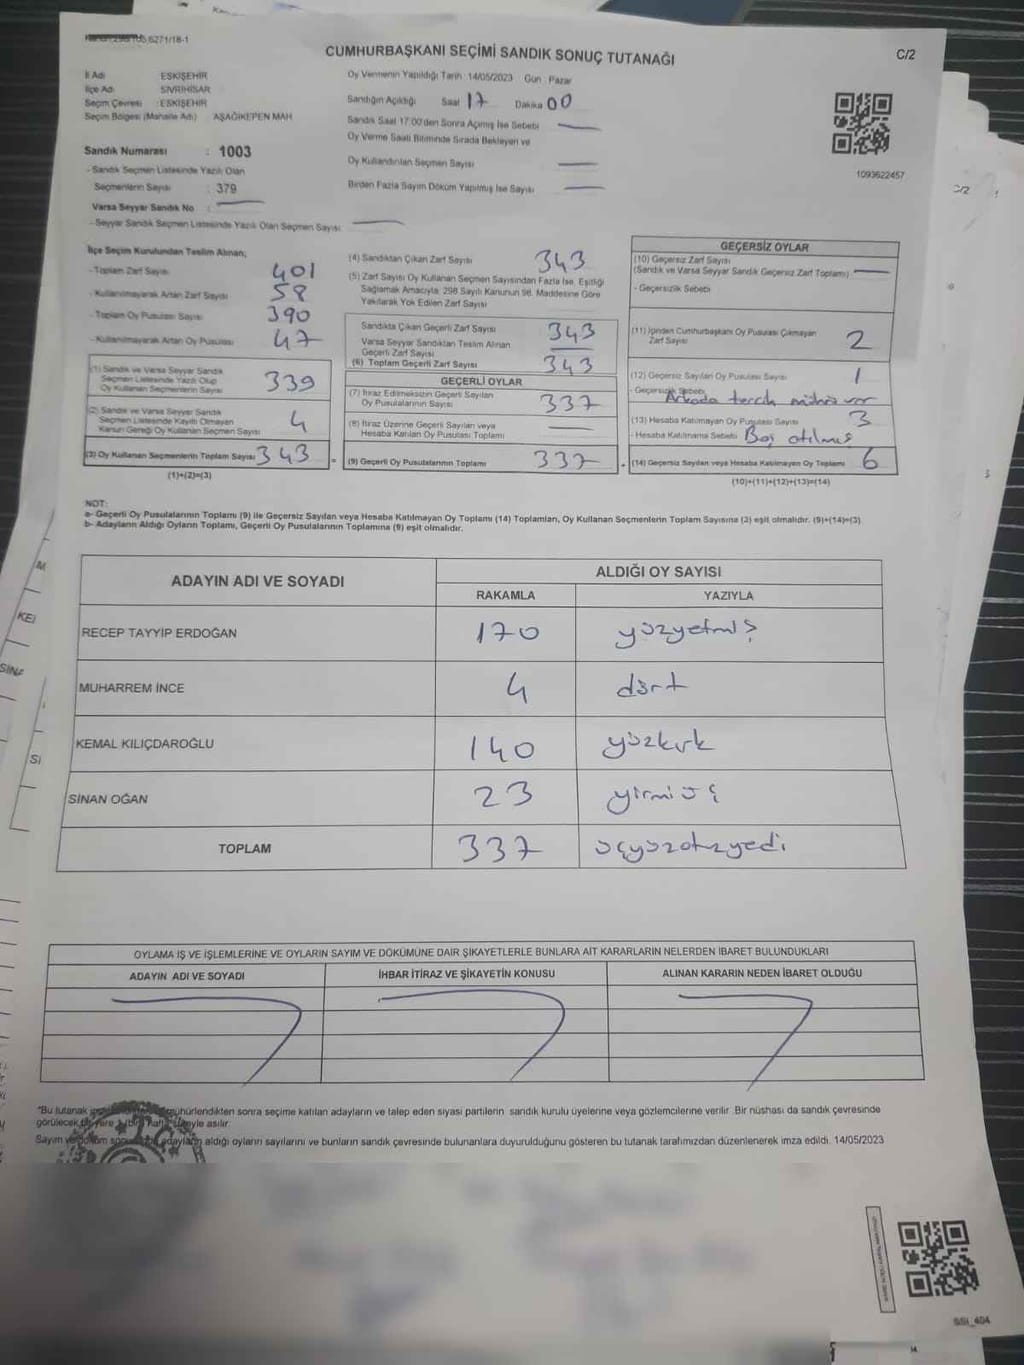 6271/18-1
CUMHURBAŞKANI SEÇİMİ SANDIK SONUÇ TUTANAĞI
C/2
İl Adı : ESKİŞEHİR
İlçe Adı : SİVRİHİSAR
Seçim Çevresi : ESKİŞEHİR
Seçim Bölgesi (Mahalle Adı) : AŞAĞIKEPEN MAH
Oy Vermenin Yapıldığı Tarih : 14/05/2023 Gün : Pazar
Sandığın Açıldığı Saat 17 Dakika 00
Sandık Saat 17:00'den Sonra Açımış İse Sebebi
Oy Verme Saati Bitiminde Sırada Bekleyen ve
Oy Kullandırılan Seçmen Sayısı
Birden Fazla Sayım Döküm Yapılmış İse Sayısı
1093622457
Sandık Numarası : 1003
- Sandık Seçmen Listesinde Yazılı Olan
Seçmenlerin Sayısı : 379
Varsa Seyyar Sandık No :
- Seyyar Sandık Seçmen Listesinde Yazılı Olan Seçmen Sayısı:
İlçe Seçim Kurulundan Teslim Alınan;
- Toplam Zarf Sayısı 401
- Kullanılmayarak Artan Zarf Sayısı 58
- Toplam Oy Pusulası Sayısı 390
- Kullanılmayarak Artan Oy Pusulası 47
(1) Sandık ve Varsa Seyyar Sandık
Seçmen Listesinde Yazılı Olup
Oy Kullanan Seçmenlerin Sayısı 339
(2) Sandık ve Varsa Seyyar Sandık
Seçmen Listesinde Kayıtlı Olmayan
Kanun Gereği Oy Kullanan Seçmen Sayısı 4
(3) Oy Kullanan Seçmenlerin Toplam Sayısı 343
(1)+(2)=(3)
(4) Sandıktan Çıkan Zarf Sayısı 343
(5) Zarf Sayısı Oy Kullanan Seçmen Sayısından Fazla İse, Eşitliği
Sağlamak Amacıyla, 298 Sayılı Kanunun 98. Maddesine Göre
Yakılarak Yok Edilen Zarf Sayısı
Sandıkta Çıkan Geçerli Zarf Sayısı 343
Varsa Seyyar Sandıktan Teslim Alınan
Geçerli Zarf Sayısı
(6) Toplam Geçerli Zarf Sayısı 343
GEÇERLİ OYLAR
(7) İtiraz Edilmeksizin Geçerli Sayılan
Oy Pusulalarının Sayısı 337
(8) İtiraz Üzerine Geçerli Sayılan veya
Hesaba Katılan Oy Pusulası Toplamı
(9) Geçerli Oy Pusulalarının Toplamı 337
GEÇERSİZ OYLAR
(10) Geçersiz Zarf Sayısı
(Sandık ve Varsa Seyyar Sandık Geçersiz Zarf Toplamı)
- Geçersizlik Sebebi
(11) İçinden Cumhurbaşkanı Oy Pusulası Çıkmayan
Zarf Sayısı 2
(12) Geçersiz Sayılan Oy Pusulası Sayısı 1
- Geçersizlik Sebebi Arkada tercih mührü var
(13) Hesaba Katılmayan Oy Pusulası Sayısı 3
- Hesaba Katılmama Sebebi Boş atılmış
(14) Geçersiz Sayılan veya Hesaba Katılmayan Oy Toplamı 6
(10)+(11)+(12)+(13)=(14)
NOT:
a- Geçerli Oy Pusulalarının Toplamı (9) ile Geçersiz Sayılan veya Hesaba Katılmayan Oy Toplamı (14) Toplamları, Oy Kullanan Seçmenlerin Toplam Sayısına (3) eşit olmalıdır. (9)+(14)=(3)
b- Adayların Aldığı Oyların Toplamı, Geçerli Oy Pusulalarının Toplamına (9) eşit olmalıdır.
ADAYIN ADI VE SOYADI
ALDIĞI OY SAYISI
RAKAMLA YAZIYLA
RECEP TAYYİP ERDOĞAN 170 yüzyetmiş
MUHARREM İNCE 4 dört
KEMAL KILIÇDAROĞLU 140 yüzkırk
SİNAN OĞAN 23 yirmiüç
TOPLAM 337 üçyüzotuzyedi
OYLAMA İŞ VE İŞLEMLERİNE VE OYLARIN SAYIM VE DÖKÜMÜNE DAİR ŞİKAYETLERLE BUNLARA AİT KARARLARIN NELERDEN İBARET BULUNDUKLARI
ADAYIN ADI VE SOYADI İHBAR İTİRAZ VE ŞİKAYETİN KONUSU ALINAN KARARIN NEDEN İBARET OLDUĞU
"Bu tutanak mühürlendikten sonra seçime katılan adayların ve talep eden siyasi partilerin sandık kurulu üyelerine veya gözlemcilerine verilir .Bir nüshası da sandık çevresinde
görülecek bir yere asılır.
Sayım ve döküm adayların aldığı oyların sayılarını ve bunların sandık çevresinde bulunanlara duyurulduğunu gösteren bu tutanak tarafımızdan düzenlenerek imza edildi. 14/05/2023